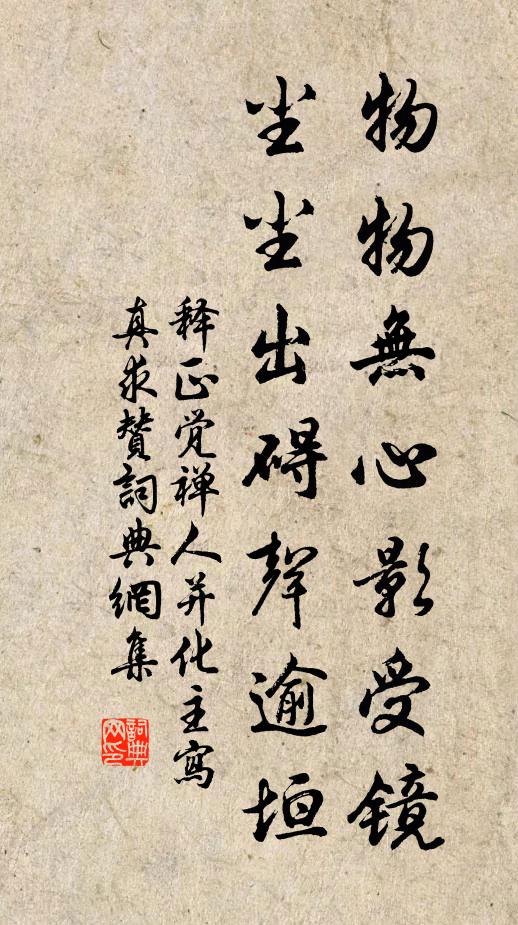 物物無心影受鏡
尘尘出碍聲逾垣
释正觉禅人并化主寫
真求贊詞典網集
詞典网印